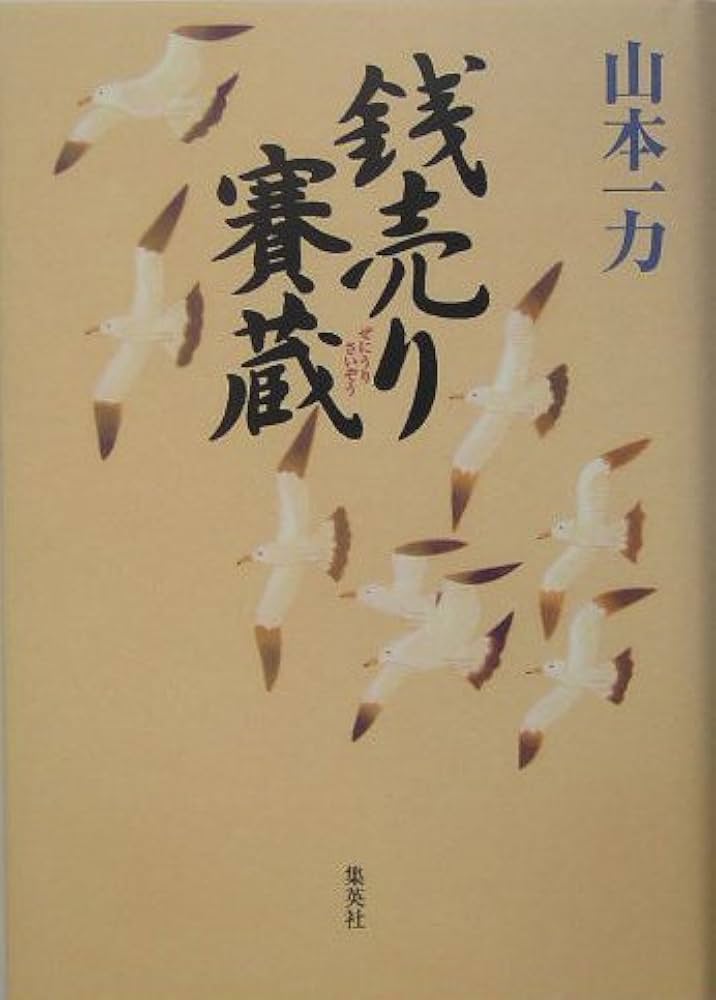 山本一力
銭売り
賽蔵
ぜにうり
さいぞう
集英社